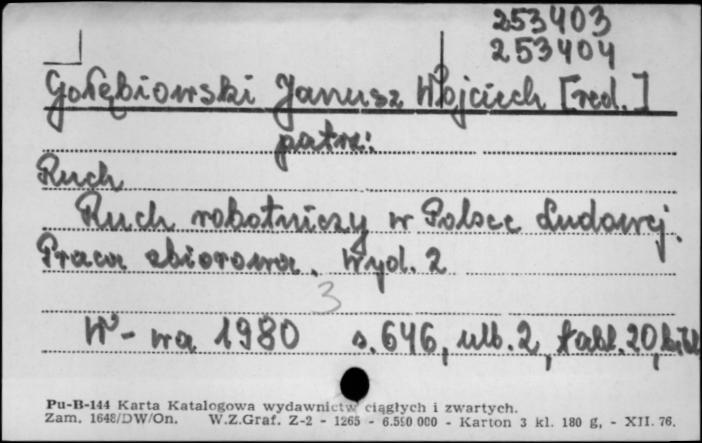 253403
253404
Gołębiowski Janusz Wojciech [red.]
patrz:
Ruch
Ruch robotniczy w Polsce Ludowej.
Praca zbiorowa. Wyd. 2
3
W-wa 1980 s. 646, ulb. 2, tabl. 20,
Pu-B-144 Karta Katalogowa wydawnictw ciągłych i zwartych.
Zam. 1648/DW/On. W.Z.Graf. Z-2 - 1265 - 6.500 000 - Karton 3 kl. 180 g, - XII. 76.